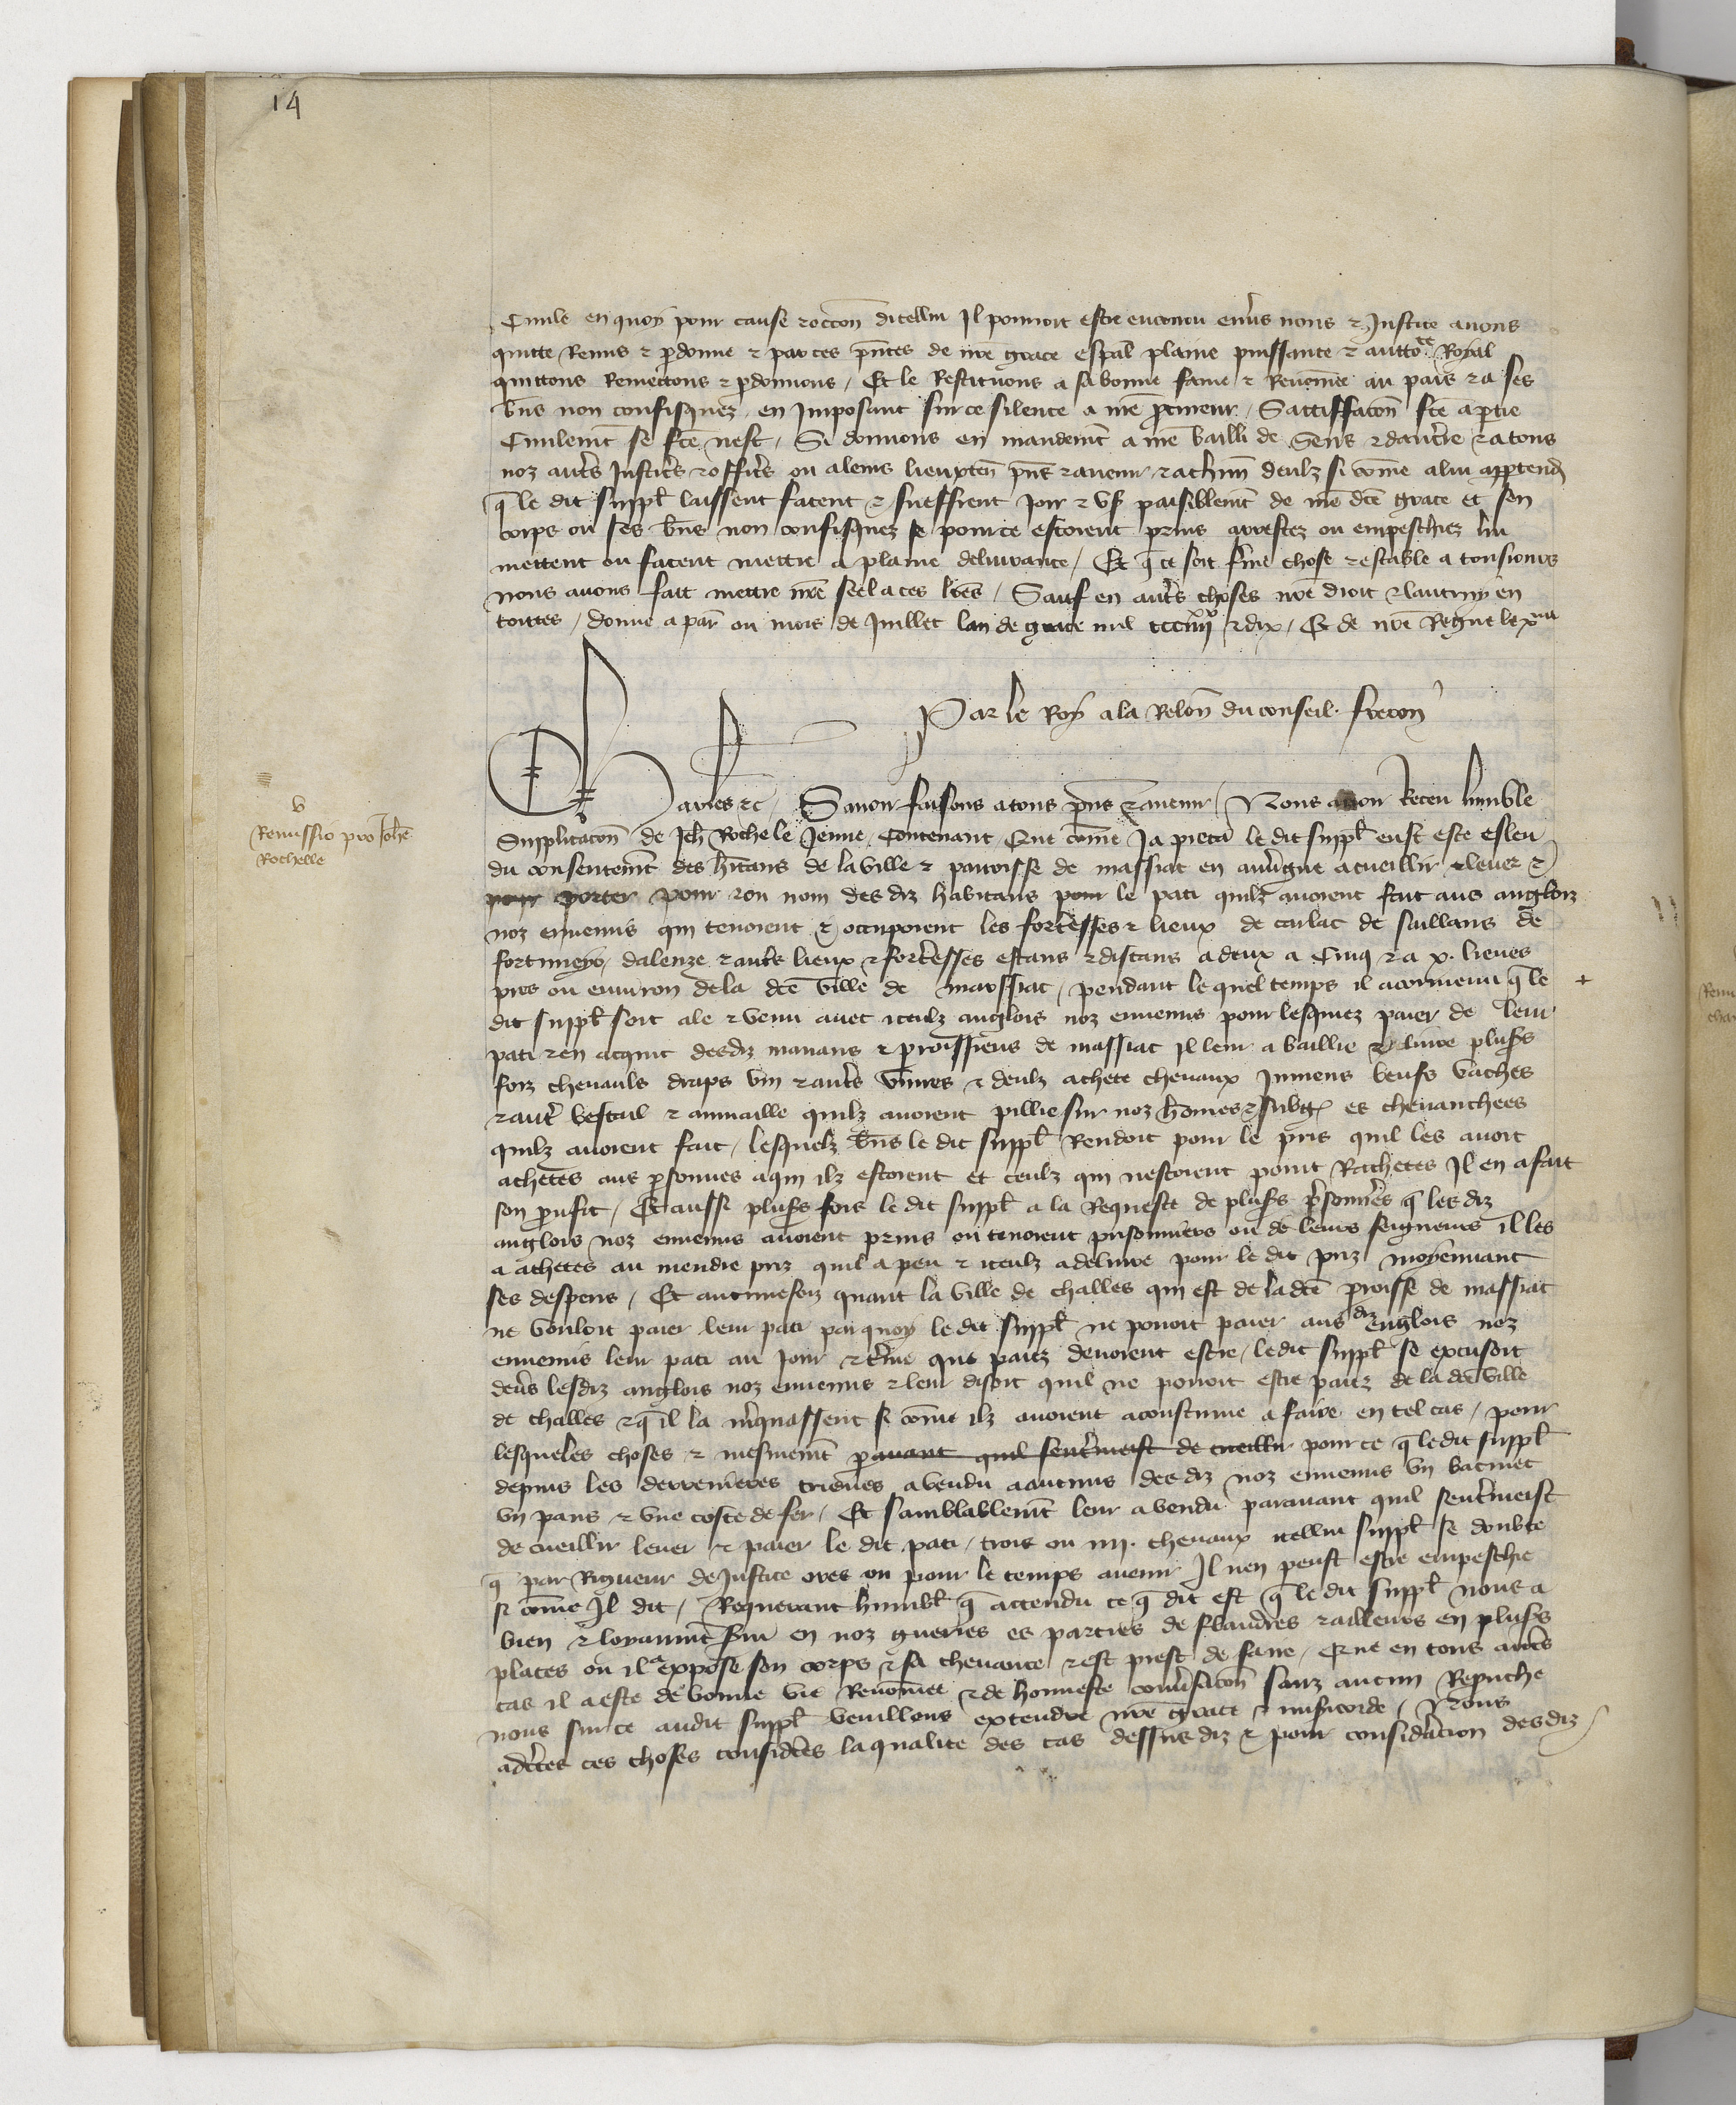 14
Civile en quoy pour cause & occon dicellui Il pourroit estre encouru envs nous & Justice avons
quitte Remis & pdonne & par ces pntes de nre grace espal plaine puissance & auttote Royal
quittons Remectons & pdonnons / Et le Restituons a sa bonne fame & Renomee au pais & a ses
bns non confisquez en Imposant sur ce silence a nre pcureur / Sattiffacon fce a ptie
Civilemt se fce nest / Si donnons en mandemt a nre bailli de Sens & daucrre & a tous
noz autrs Justicrs & officrs ou a leurs lieuxten pns & avenir & a chun deulz si come a lui apptendra
q le dit suppl laissent facent & sueffrent Joir & us paisiblemt de nre dce grace et son
corps ou ses bns non confisquez se pource estoient prins arrestez ou empeschiez lui
mettent ou facent mettre a plaine delivrance / Et q ce soit fme chose & estable a tousjours
nous avons fait mettre nre seel a ces lres / Sauf en autrs choses nre droit & lautruy en
toutes / donne a par ou mois de Juillet lan de grace mil ccciiiixx & dix / Et de nre Regne le xme
Par le Roy a la Relon du conseil. freron
Charles &c / Savoir faisons a tous pns & avenir / Nous avon Receu humble
v
Remissio pro Johe
Rochelle
Supplicacon de Jeh Roche le Jenne / Contenant Que come Ja pieca le dit suppl eust este esleu
du consentemt des hitans de la ville & parroisse de massiac en auvgne a cueillir & lever &
pour porter pour & ou nom des diz habitans pour le pati quilz avoient fait aus anglois
noz ennemis qui tenoient & occupoient les fortesses & lieux de carlac de saillans de
fortunieyo / daleuze & autrs lieux & forteresses estans & distans a deux a Cinq & a x. lieues
pres ou environ de la dce ville de marssiac / pendant le quel temps il a convenu q le
dit suppl soit ale & venu avec iceulz anglois noz ennemis pour lesquiez paier de leur
pati & en acquit desdiz manans & proissiens de massiac Il leur a baillie & delivre plusrs
foiz chevauls draps vin & autrs vivres & deulz achete chevaux Jumens beufs vaches
& autr bestail & aumaille quilz avoient pillie sur noz homes & subgz es chevauchees
quilz avoient fait / lesquelz bns le dit suppl Rendoit pour le pris quil les avoit
achetes aus psonnes a qui ilz estoient et ceulz qui nestoient point Rachetes Il en a fait
son pufit / Et aussi plusrs fois le dit suppl a la Requeste de plusrs psonnes q les diz
anglois noz ennemis avoient prins ou tenoient prisonniers ou de leurs seigneurs il les
a achetes au mendre priz quil a peu & iceulz a delivre pour le dit priz moyennant
ses despens / Et aucunefoiz quant la ville de challes qui est de la dce proisse de massiac
ne vouloit paier leur pati par quoy le dit suppl ne povoit paier aus diz englois noz
ennemis leur pati au Jour & tme que paiez devoient estre / le dit suppl se excusoit
devs lesdiz anglois noz ennemis & leur disoit quil ne povoit estre paiez de la dce ville
de challes & q il la mrquassent si come ilz avoient acoustume a faire en tel cas / pour
lesqueles choses & mesmemt pavant quil sentrmeist de cueillir pour ce q le dit suppl
depuis les derrenieres trieves a vendu a aucuns des diz noz ennemis un bacinet
un pans & une coste de fer / Et samblablemt leur a vendu paravant quil sentrmeist
de cueillir lever & paier le dit pati / trois ou iiii. chevaux icellui suppl se doubte
q par Rigueur de Justice ores ou pour le temps avenir Il nen peust estre empeschie
si come Il dit / Requerant humbl q attendu ce q dit est q le dit suppl nous a
bien & loyaumt svi en noz guerres es parties de flandres & ailleurs en plusrs
places ou il a expose son corps & sa chevance & est prest de faire / Que en tous autrs
cas il a este de bonne vie Renomee & de honneste convsacon sanz aucun Repuche
nous sur ce audit suppl veuillons extendre nre grace & misicorde / Nous
adctes ces choses considces la qualite des cas dessus diz & pour considacion desdiz